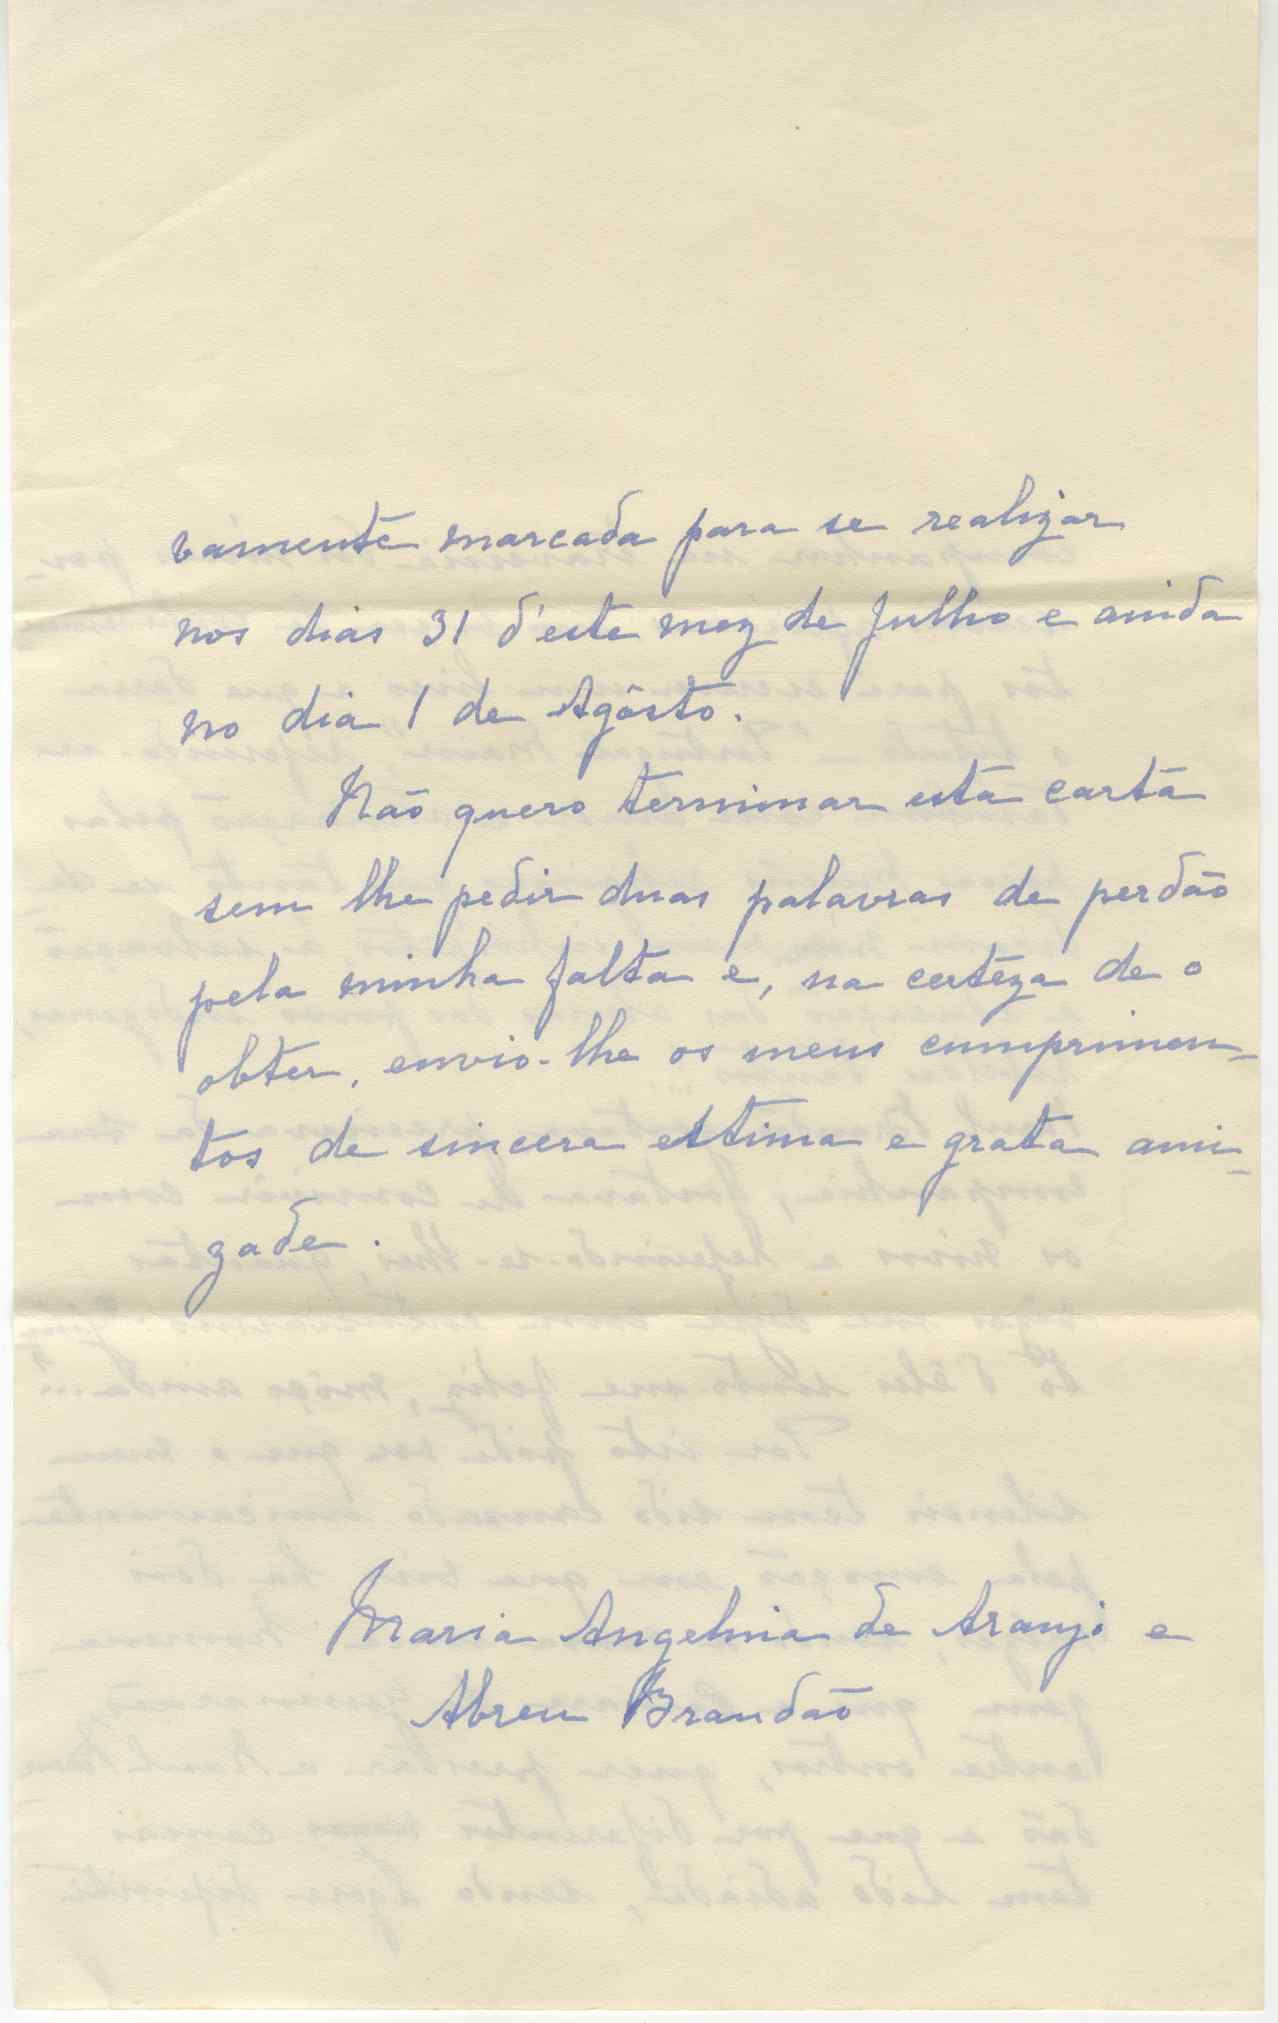 vamente marcada para se realizar
nos dias 31 d'este mez de Julho e ainda
no dia 1 de Agôsto.
Não quero terminar esta carta
sem lhe pedir duas palavras de perdão
pela minha falta e, na certeza de o
obter, envio-lhe os meus cumprimen-
tos de sincera estima e grata ami-
zade.
Maria Angelina de Araujo e
Abreu Brandão